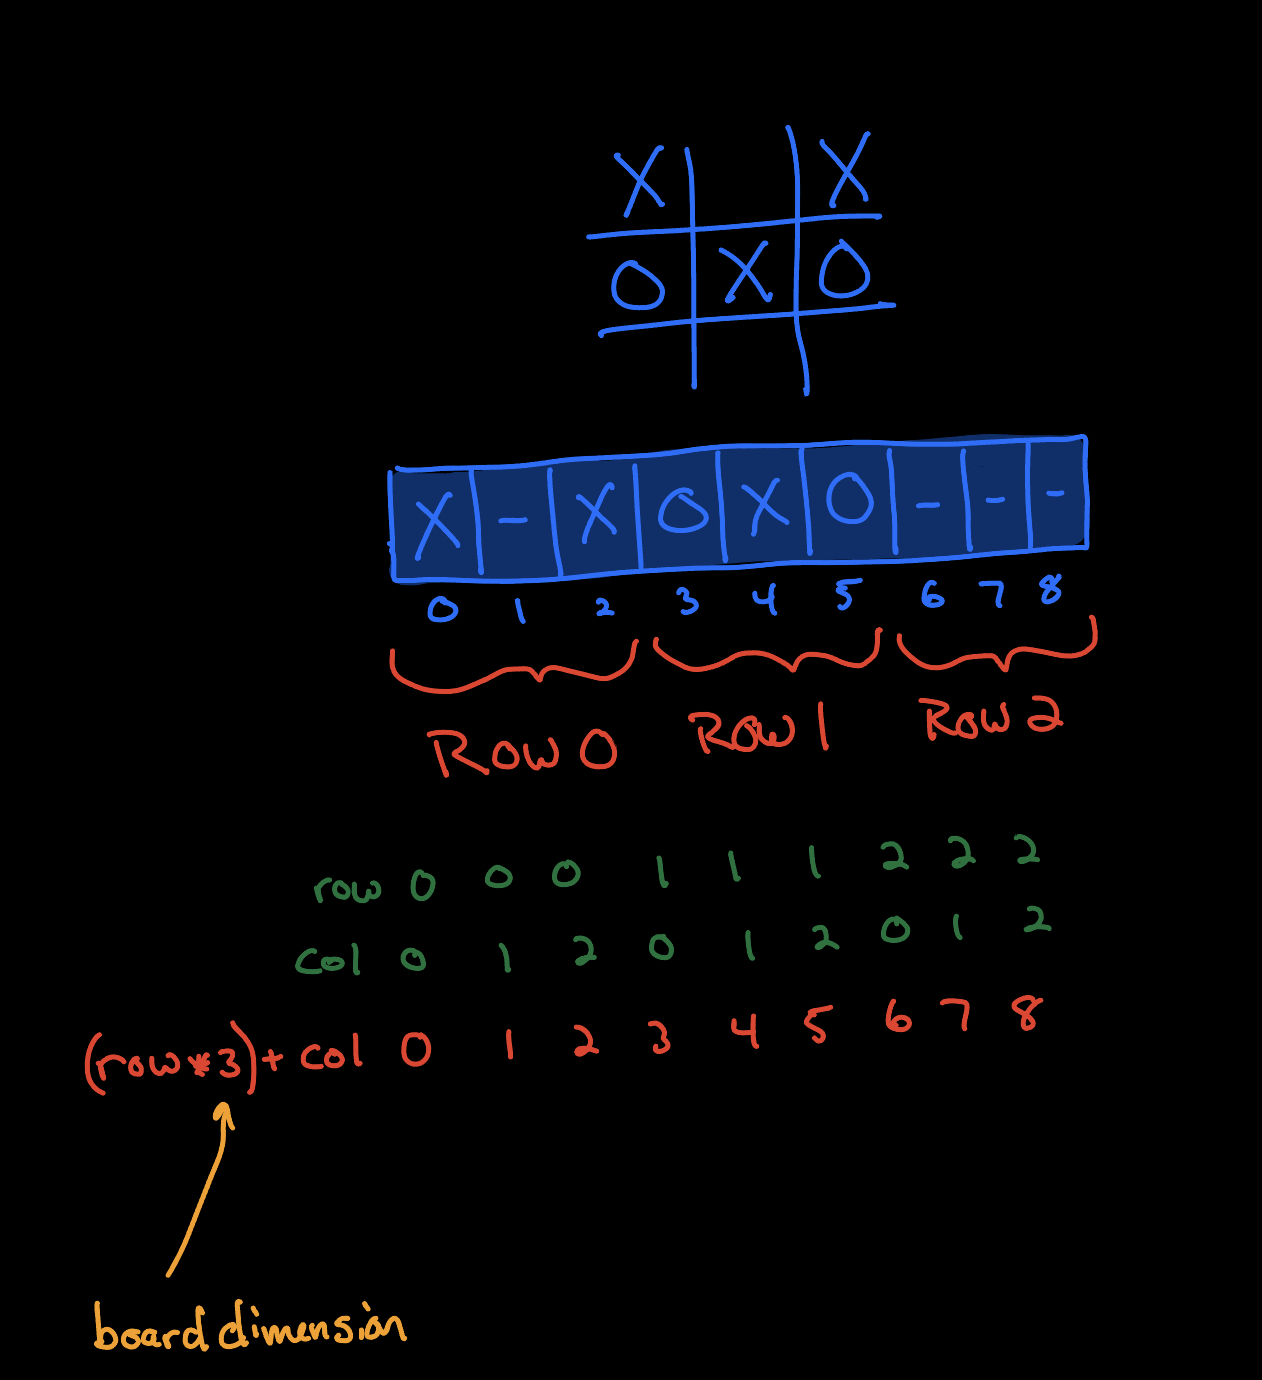 X X
O X O
X - X O X O - - -
0 1 2 3 4 5 6 7 8
Row 0 Row 1 Row 2
row 0 0 0 1 1 1 2 2 2
col 0 1 2 0 1 2 0 1 2
(row*3)+ col 0 1 2 3 4 5 6 7 8
board dimension